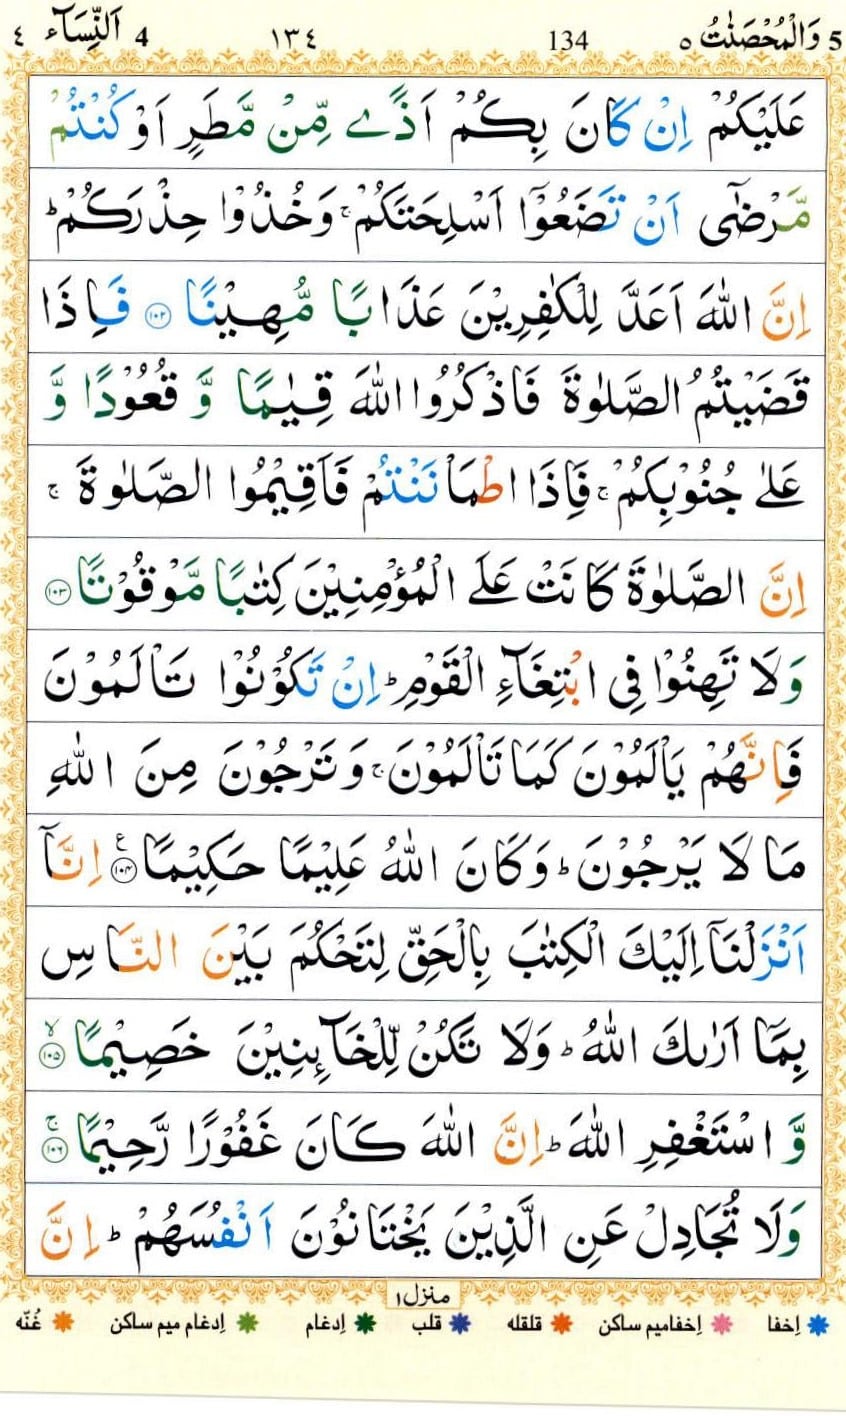 5 وَالْمُحْصَنٰتُ ٥ 134 ١٣٤ 4 اَلنِّسَآء ٤
عَلَيْكُمْ اِنْ كَانَ بِكُمْ اَذًى مِّنْ مَّطَرٍ اَوْ كُنْتُمْ
مَّرْضٰۤى اَنْ تَضَعُوْۤا اَسْلِحَتَكُمْ ۚ وَخُذُوْا حِذْرَكُمْ ؕ
اِنَّ اللّٰهَ اَعَدَّ لِلْكٰفِرِيْنَ عَذَابًا مُّهِيْنًا ۝۱۰۲ فَاِذَا
قَضَيْتُمُ الصَّلٰوةَ فَاذْكُرُوا اللّٰهَ قِيٰمًا وَّ قُعُوْدًا وَّ
عَلٰى جُنُوْبِكُمْ ۚ فَاِذَا اطْمَاْنَنْتُمْ فَاَقِيْمُوا الصَّلٰوةَ ۚ
اِنَّ الصَّلٰوةَ كَانَتْ عَلَى الْمُؤْمِنِيْنَ كِتٰبًا مَّوْقُوْتًا ۝۱۰۳
وَلَا تَهِنُوْا فِى ابْتِغَآءِ الْقَوْمِ ؕ اِنْ تَكُوْنُوْا تَاْلَمُوْنَ
فَاِنَّهُمْ يَاْلَمُوْنَ كَمَا تَاْلَمُوْنَ ۚ وَتَرْجُوْنَ مِنَ اللّٰهِ
مَا لَا يَرْجُوْنَ ؕ وَكَانَ اللّٰهُ عَلِيْمًا حَكِيْمًا ۝۱۰۴ ع اِنَّاۤ
اَنْزَلْنَاۤ اِلَيْكَ الْكِتٰبَ بِالْحَقِّ لِتَحْكُمَ بَيْنَ النَّاسِ
بِمَاۤ اَرٰىكَ اللّٰهُ ؕ وَلَا تَكُنْ لِّلْخَآئِنِيْنَ خَصِيْمًا ۝۱۰۵ ۙ
وَّ اسْتَغْفِرِ اللّٰهَ ؕ اِنَّ اللّٰهَ كَانَ غَفُوْرًا رَّحِيْمًا ۝۱۰۶ ۚ
وَلَا تُجَادِلْ عَنِ الَّذِيْنَ يَخْتَانُوْنَ اَنْفُسَهُمْ ؕ اِنَّ
منزل ۱
اِخفا اِخفامیم ساکن قلقله قلب اِدغام اِدغام میم ساکن غُنّه